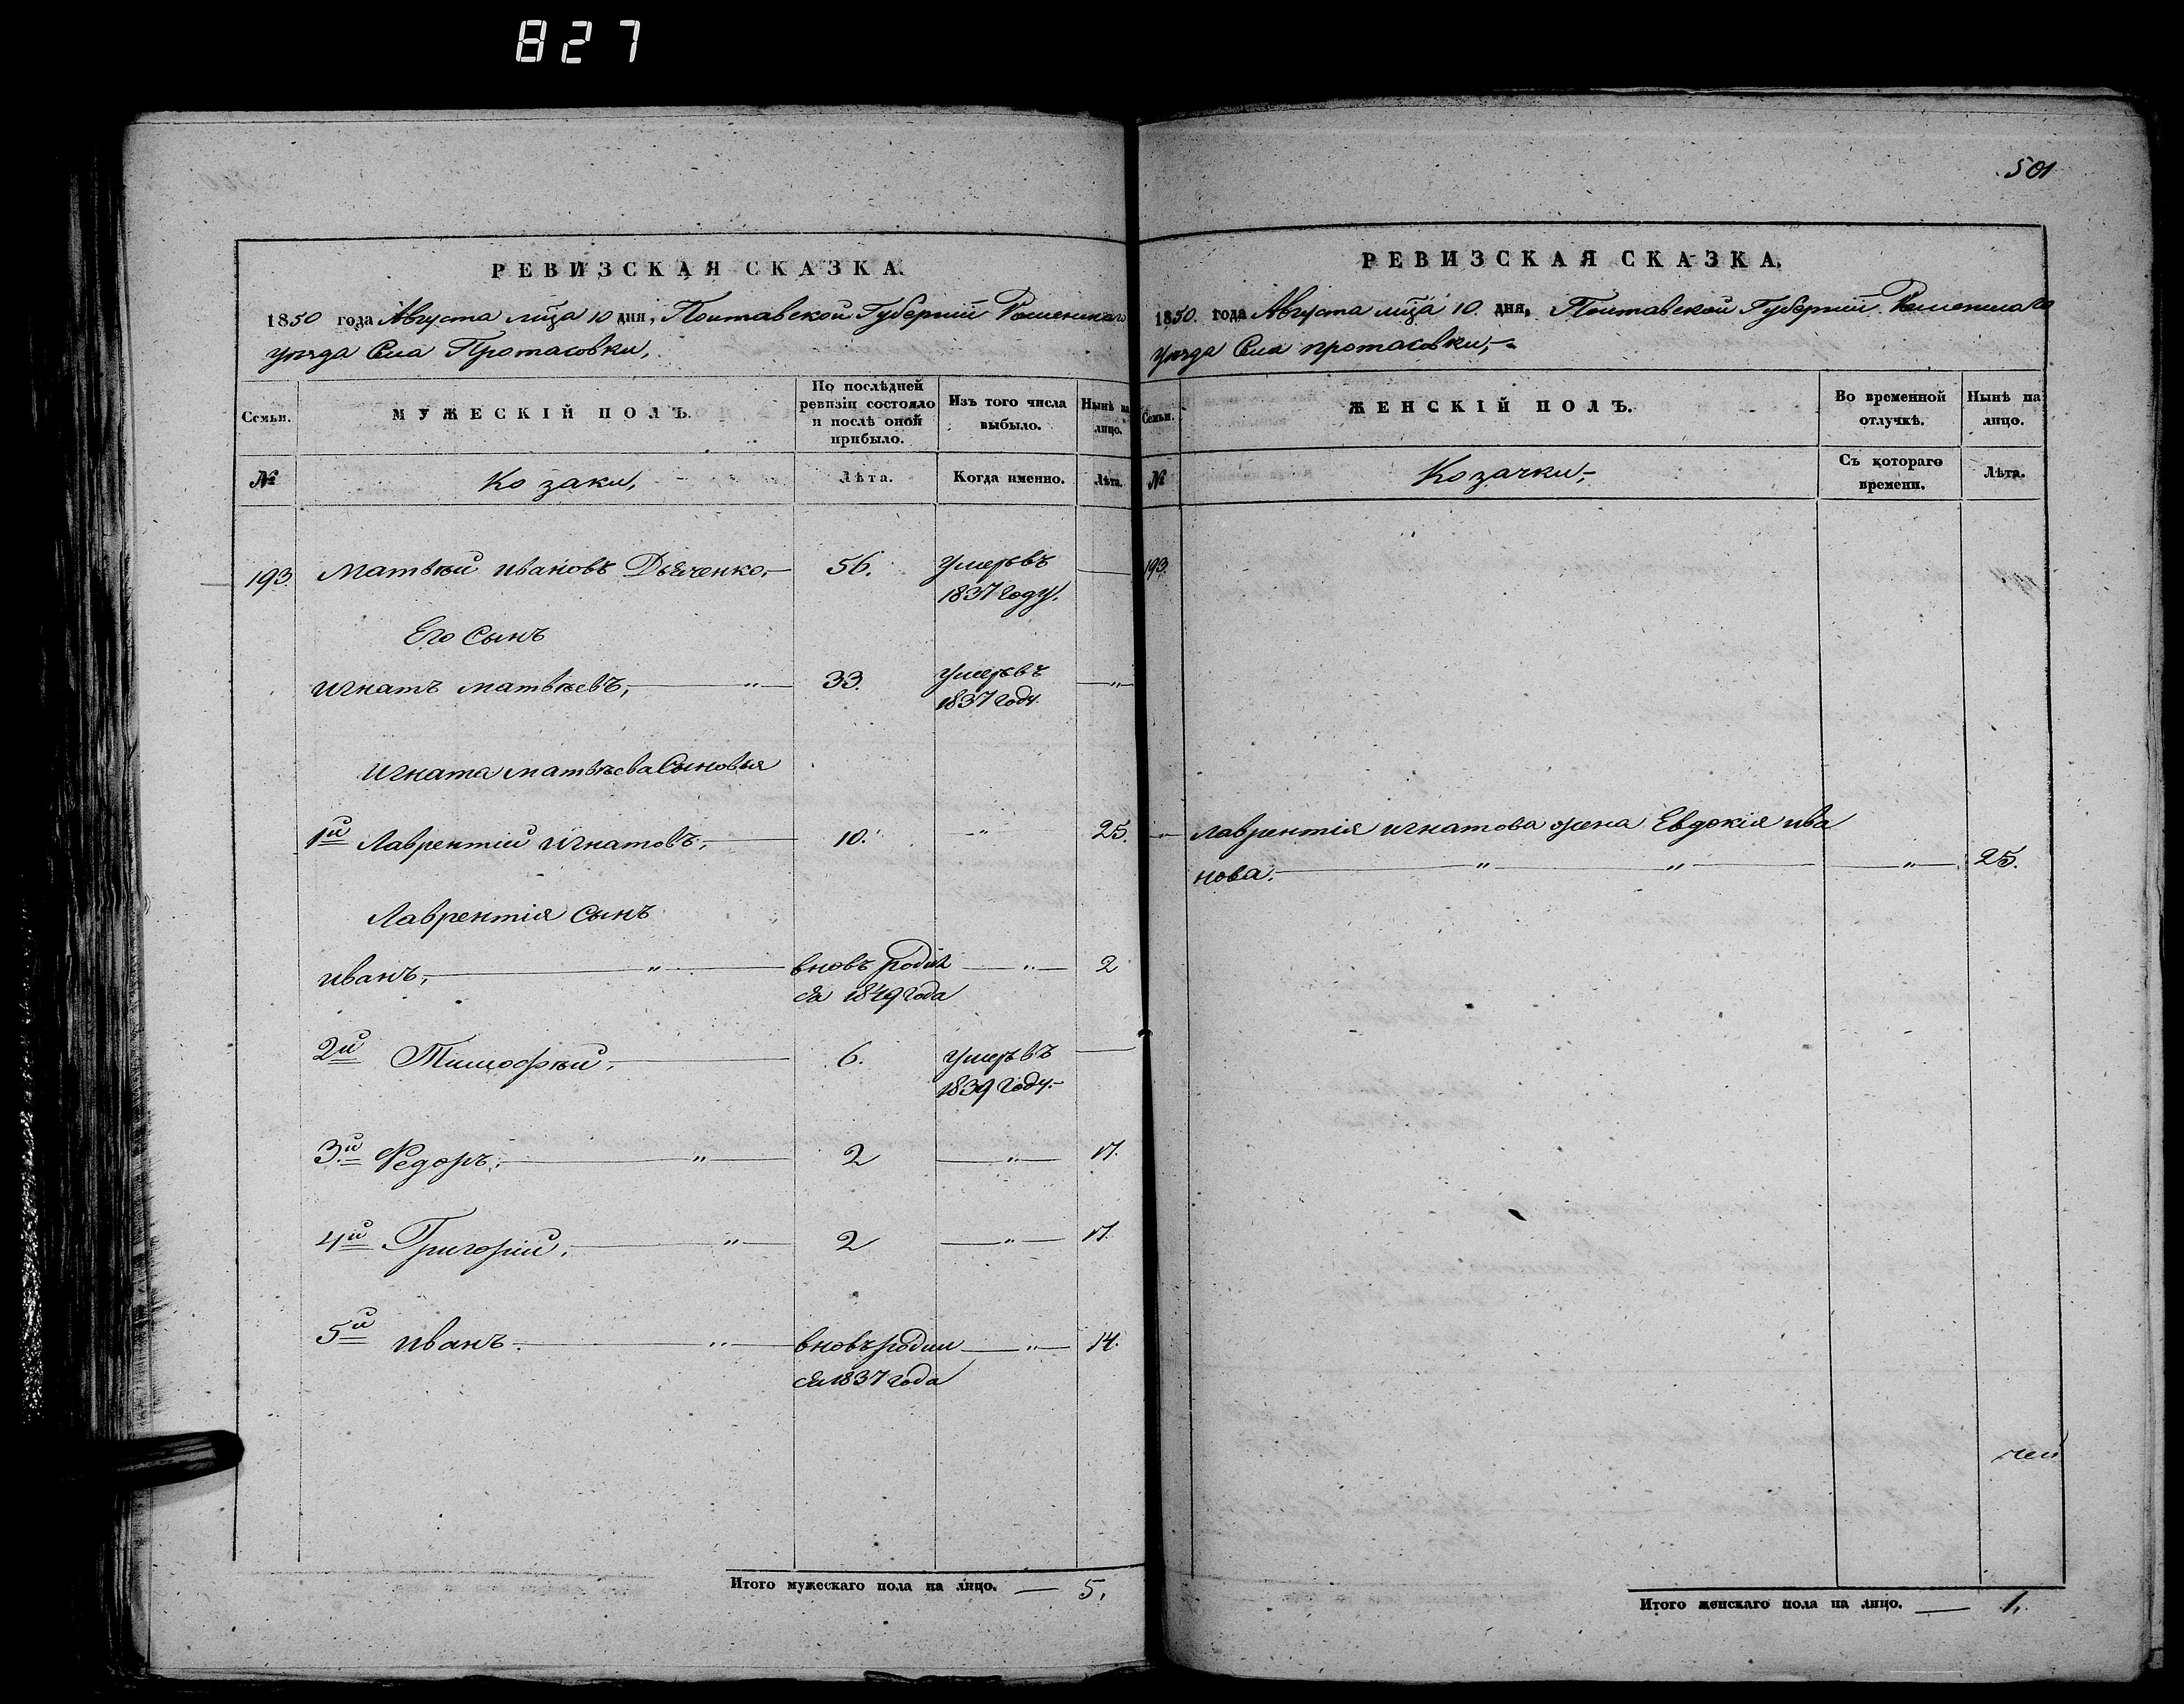 827
501
РЕВИЗСКАЯ СКАЗКА.
1850 года Августа мца 10 дня, Полтавской Губерніи Роменскаго
уѣзда Села Протасовки,
Семьи.
МУЖЕСКІЙ ПОЛЪ.
По послѣдней ревизіи состояло и послѣ оной прибыло.
Изъ того числа выбыло.
Нынѣ на лицо.
№
Козаки,
Лѣта.
Когда именно.
Лѣта.
193. Матвѣй ивановъ Дьяченко, 56. Умеръ въ
1837 году.
Его Сынъ
Игнатъ матвѣевъ, 33. Умеръ въ
1837 году.
Игната матвѣева Сыновья
1й Лаврентій Игнатовъ, 10. 25.
Лаврентія Сынъ
иванъ, вновь родил 2
ся 1849 года
2й Тимофѣй, 6. Умеръ въ
1839 году.
3й Федоръ, 2 17.
4й Григорій, 2 17.
5й иванъ. вновь родил 14.
ся 1837 года
Итого мужескаго пола на лицо. — 5.
РЕВИЗСКАЯ СКАЗКА.
1850. года Августа мца 10. дня, Полтавской Губерніи Роменскаго
уѣзда Села протасовки,
Семьи.
ЖЕНСКІЙ ПОЛЪ.
Во временной отлучкѣ.
Нынѣ на лицо.
№
Козачки,
Съ котораго времени.
Лѣта.
193.
Лаврентія игнатова жена Евдокія ива
нова. 25.
Итого женскаго пола на лицо. — 1,